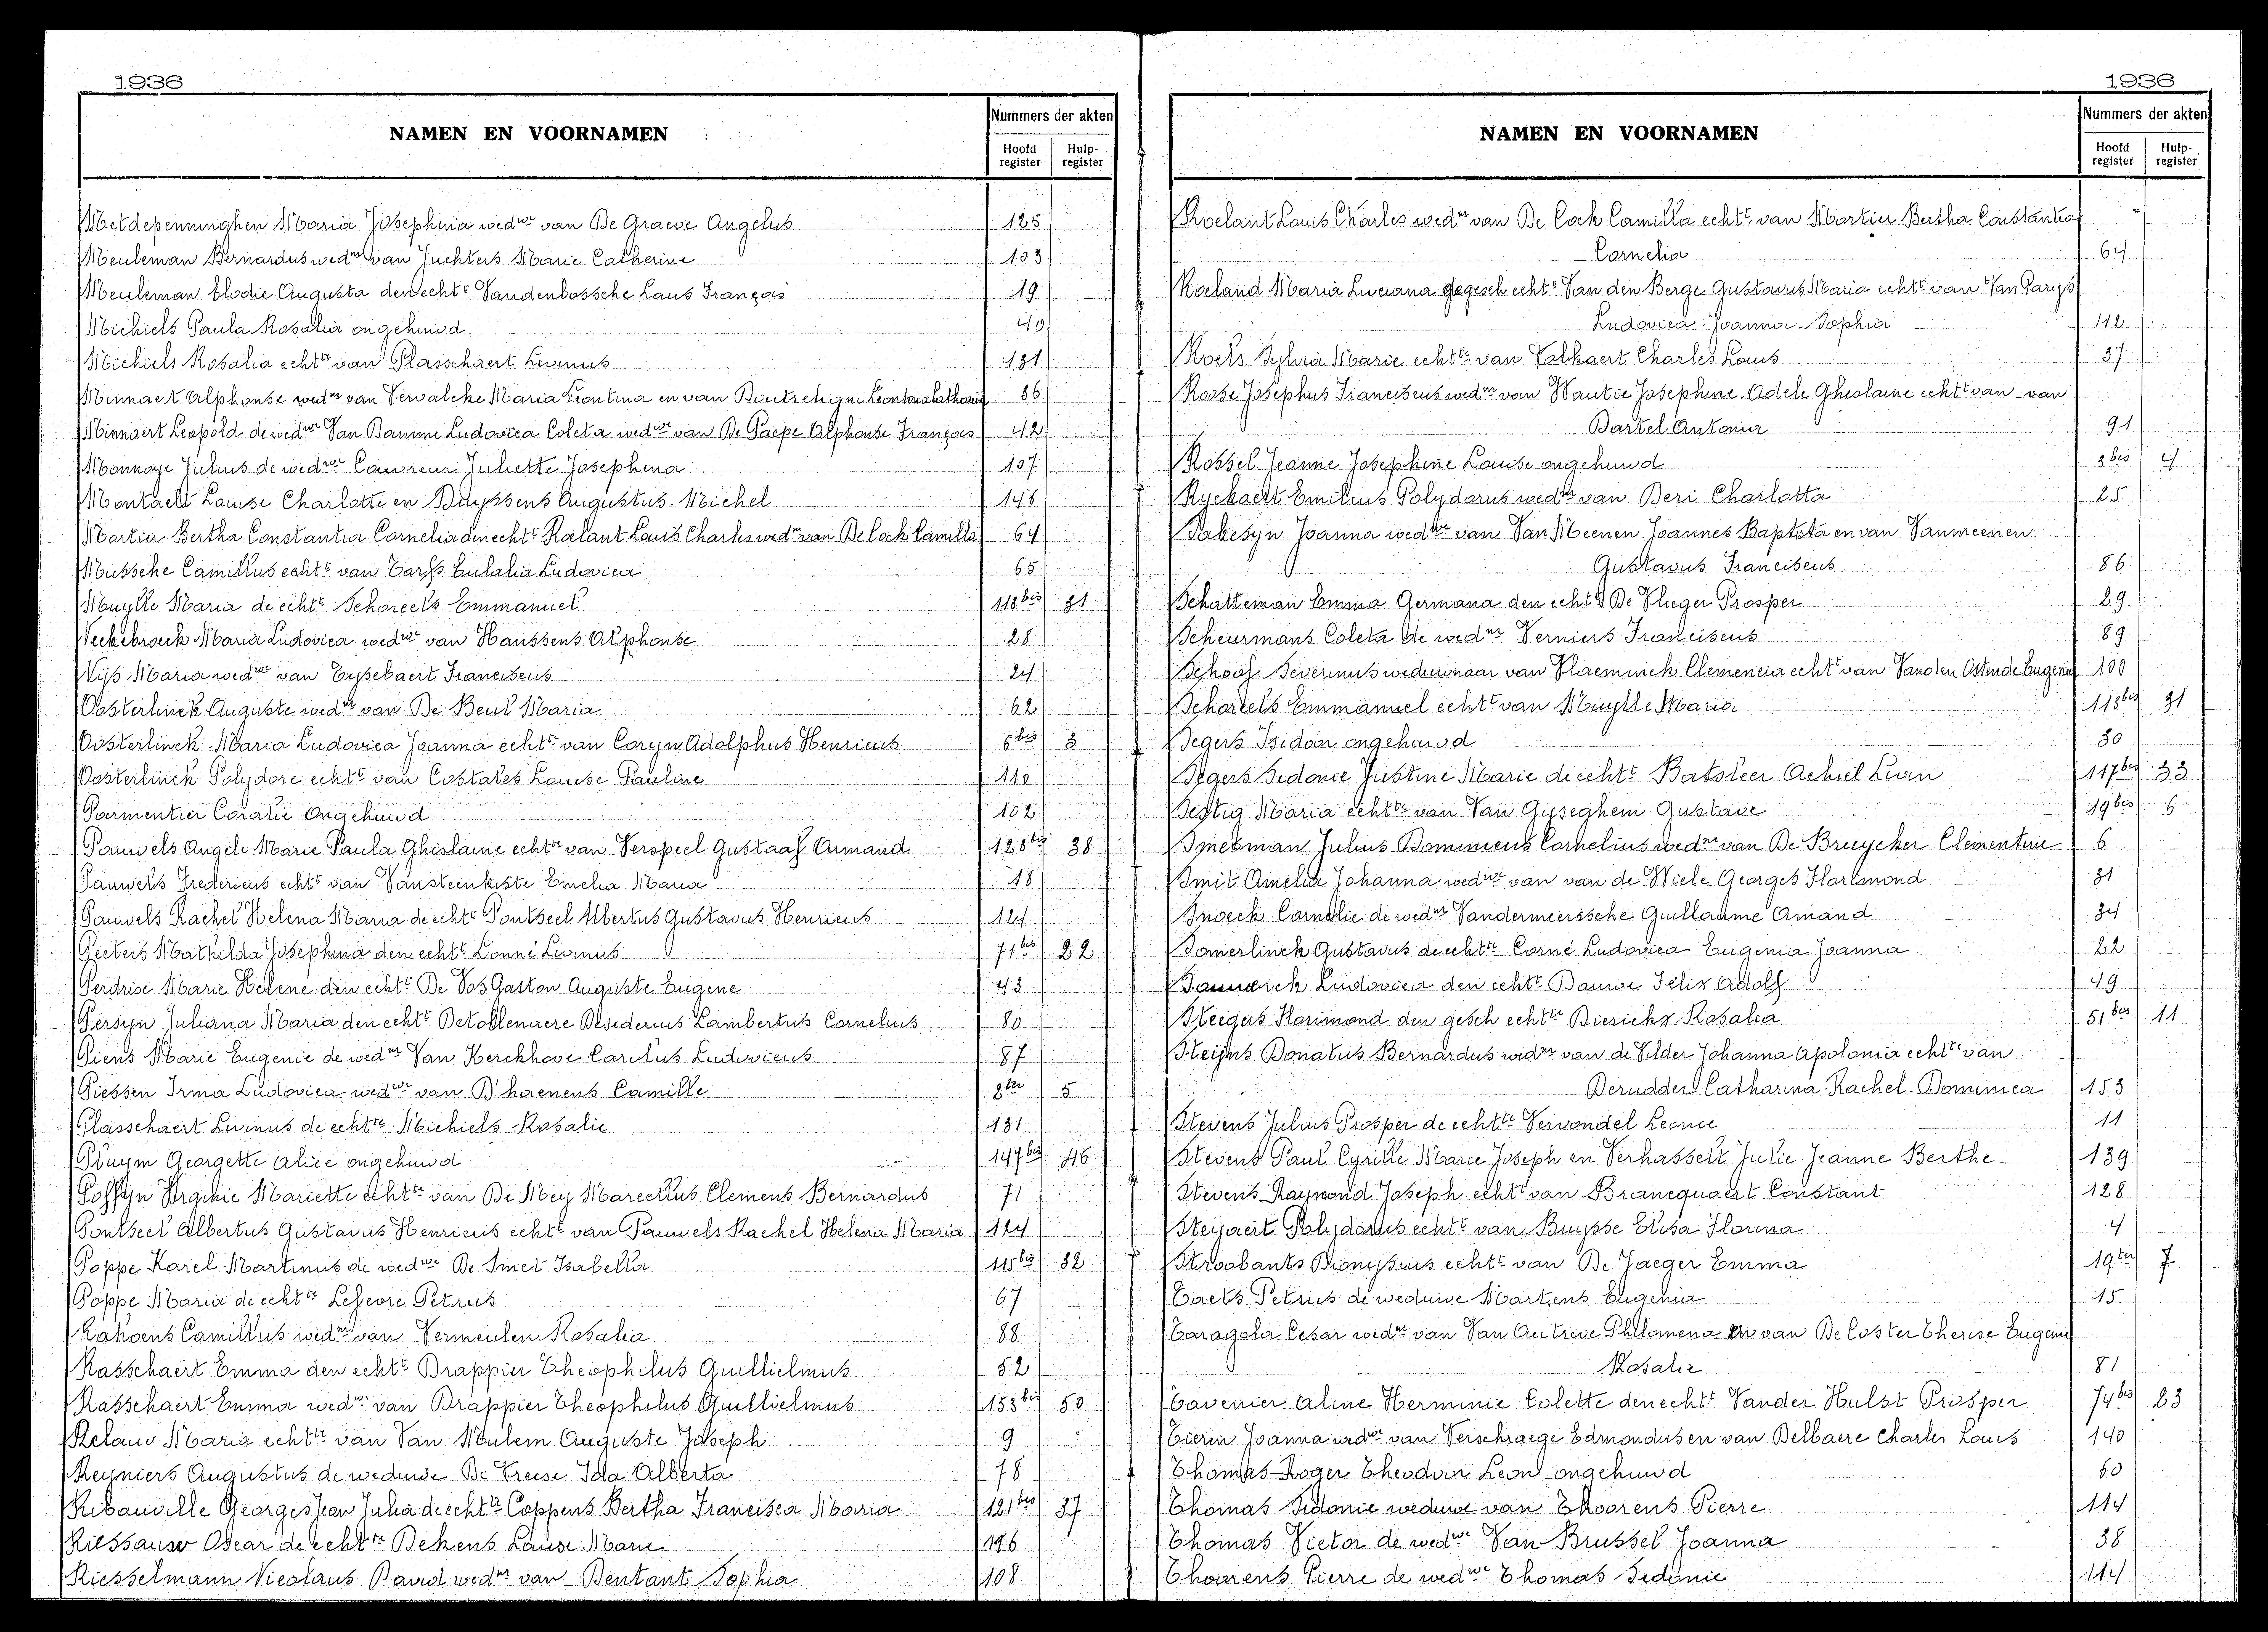 1936
NAMEN EN VOORNAMEN
Nummers der akten
Hoofd register
Hulp- register
Metdepenninghen Maria Josephina wedwe van De Graeve Angelus 125
Meuleman Bernardus wednr van Juchters Marie Catherine 103
Meuleman Elodie Augusta den echte Vandenbossche Louis François 19
Michiels Paula Rosalia ongehuwd 40
Michiels Rosalia echtte van Plasschaert Livinus 131
Minnaert Alphonse wednr van Dewalcke Maria Leontina en van Leontina Catharina 36
Minnaert Leopold de wedwe Van Damme Ludovica Coleta wedwe van De Paepe Alphonse François 42
Monnaye Julius de wedwe Couvreur Juliette Josephina 137
Louise Charlotte en Augustus Michel 146
Mortier Bertha Constantia Cornelia den echte Roelant Louis Charles wednr van De Cock Camilla 64
Mussche Camillus echte van Eulalia Ludovica 65
Muylle Maria de echte Schoreels Emmanuel 118bis 31
Neckebroeck Maria Ludovica wedwe van Haussens Alphonse 28
Nijs Maria wedwe van Eysebaert Franciscus 24
Oosterlinck Auguste wednr van De Beul Maria 62
Oosterlinck Maria Ludovica Joanna echtte van Coryn Adolphus Henricus 6bis 3
Oosterlinck Polydore echte van Louise Pauline 110
Parmentier Coralie Ongehuwd 102
Pauwels Angele Marie Paula Ghislaine echtte van Verspeel Gustaaf Armand 123bis 38
Pauwels Fredericus echte van Vansteenkiste Emelia Maria 18
Pauwels Rachel Helena Maria de echte Pontseel Albertus Gustavus Henricus 124
Peeters Mathilda Josephina den echte Lonné Livinus 71bis 22
Perdrise Marie Helene den echte De Vos Gaston Auguste Eugene 43
Persyn Juliana Maria den echte Detollenaere Desiderius Lambertus Cornelius 80
Piens Marie Eugenie de wednr Van Kerckhove Carolus Ludovicus 87
Piessen Irma Ludovica wedwe van D'haenens Camille 2ter 5
Plasschaert Livinus de echtte Michiels Rosalie 131
Pluym Georgette Alice ongehuwd 147bis 46
Poffyn Virginie Mariette echtte van De Mey Marcellus Clemens Bernardus 71
Pontseel Albertus Gustavus Henricus echte van Pauwels Rachel Helena Maria 124
Poppe Karel Martinus de wedwe De Smet Isabella 115bis 32
Poppe Maria de echtte Lefevre Petrus 67
Rahoens Camillus wednr van Vermeulen Rosalia 88
Rasschaert Emma den echte Drappier Theophilus Guillielmus 52
Rasschaert Emma wedwe van Drappier Theophilus Guillielmus 153bis 50
Relauw Maria echtte van Van Meulem Auguste Joseph 9
Reyniers Augustus de weduwe De Treise Ida Alberta 78
Ribauville Georges Jean Julia de echtte Coppens Bertha Francisca Maria 121bis 37
Oscar de echtte Bekens Louise Marie 196
Riesselmann Nicolaus David wednr van Bentant Sophia 108
1936
NAMEN EN VOORNAMEN
Nummers der akten
Hoofd register
Hulp- register
Roelant Louis Charles wednr van De Cock Camilla echte van Mortier Bertha Constantia
Cornelia 64
Roeland Maria Luciana gegesch echte Van den Berge Gustavus Maria echte van Van Parys
Ludovica Joanna Sophia 112
Roels Sylvia Marie echtte van Volkaert Charles Louis 37
Roose Josephus Franciscus wednr van Wautie Josephine Adele Gheslaine echte van van
Bartel Antonia 91
Rossel Jeanne Josephine Louise ongehuwd 3bis 4
Ryckaert Emilius Polydorus wednr van Beri Charlotta 25
Sakesyn Joanna wedwe van Van Meenen Joannes Baptista en van Vanmeenen
Gustavus Franciscus 86
Schatteman Emma Germana den echte De Vlieger Prosper 29
Scheurmans Coleta de wednr Verniers Franciscus 89
Schoof Severinus weduwnaar van Vlaeminck Clemencia echte van Vanden Ostende Eugenia 100
Schoreels Emmanuel echte van Muylle Maria 118bis 31
Segers Isidoor ongehuwd 30
Segers Sidonie Justine Marie de echte Batsleer Achiel Livin 117bis 33
Sestig Maria echtte van Van Gyseghem Gustave 19bis 6
Smesman Julius Dominicus Cornelius wednr van De Bruycker Clementine 6
Smit Amelia Johanna wedwe van van de Wiele Georges Florimond 31
Snoeck Cornelie de wednr Vandermeerssche Guillaume Amand 34
Somerlinck Gustavus de echtte Corné Ludovica Eugenia Joanna 22
Ludovica den echte Bauwe Felix Adolf 49
Steigers Florimond den gesch echtte Dierickx Rosalia 51bis 11
Steijns Donatus Bernardus wednr van de Vilder Johanna Apolonia echtte van
Derudder Catharina Rachel Dominica 153
Stevens Julius Prosper de echtte Vervondel Leonie 11
Stevens Paul Cyrille Marie Joseph en Verhasselt Julie Jeanne Berthe 139
Stevens Raymond Joseph echte van Brancquaert Constant 128
Steyaert Polydorus echte van Buysse Elisa Florina 4
Stroobants Dionysius echte van De Jaeger Emma 19ter 7
Taets Petrus de weduwe Martens Eugenia 15
Taragola Cesar wednr van Van Autreve Philomena en van De Coster Therese Eugenie
Rosalie 81
Tavenier Aline Herminie Colette den echte Vander Hulst Prosper 74bis 23
Tierin Joanna wedwe van Verschraege Edmondus en van Delbaere Charles Louis 140
Thomas Roger Theodoor Leon ongehuwd 60
Thomas Sidonie weduwe van Thoorens Pierre 114
Thomas Victor de wedwe Van Brussel Joanna 38
Thoorens Pierre de wedwe Thomas Sidonie 114